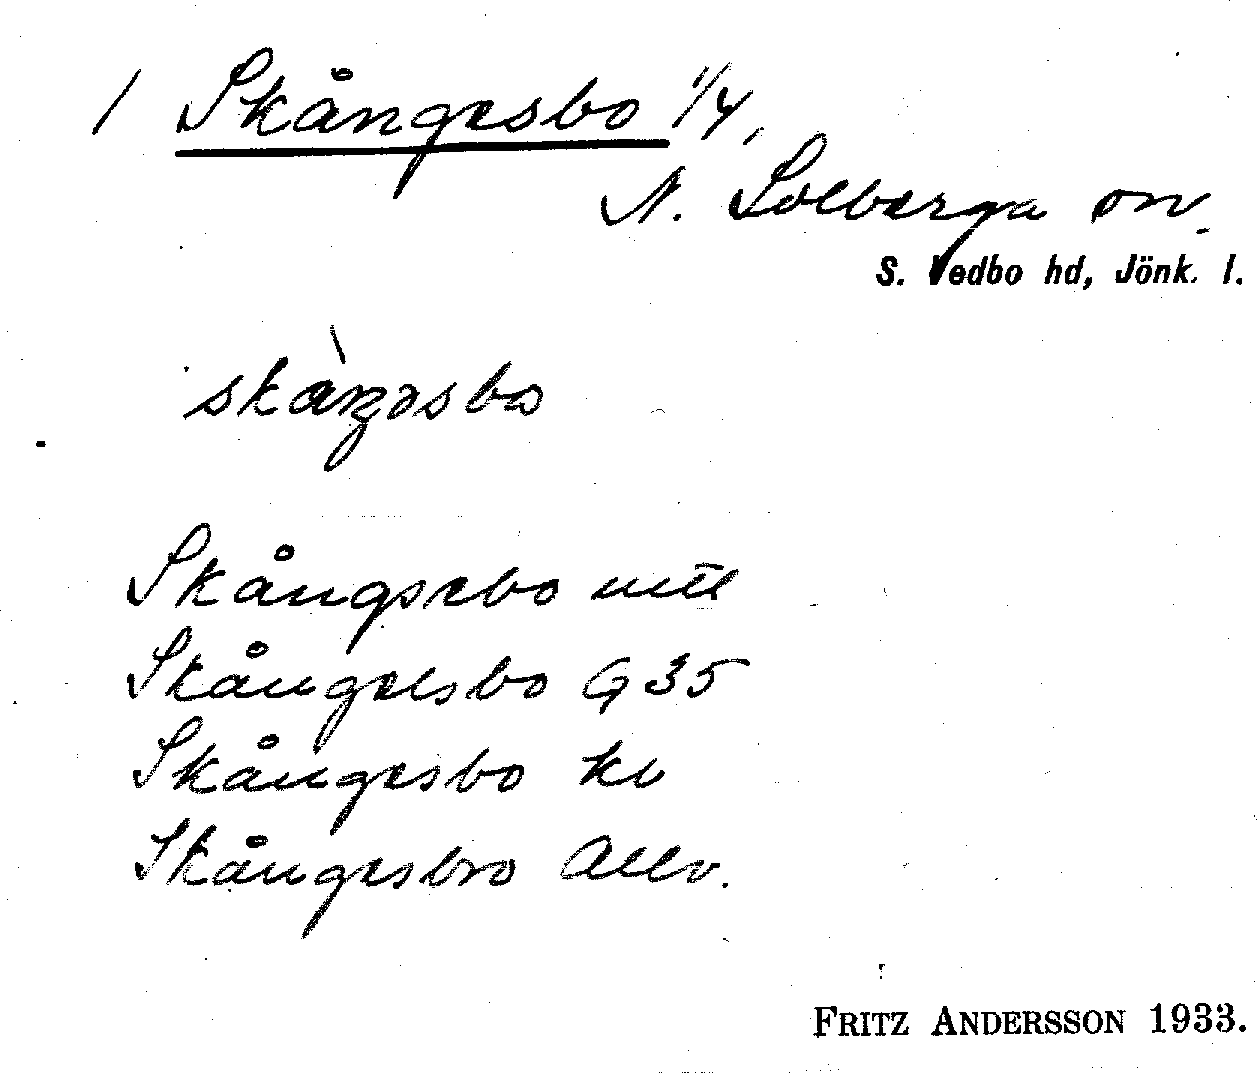 1 Skångesbo 1/4,
N. Solberga sn.
S. Vedbo hd, Jönk. l.
skåŋəsbo
Skångsebo
Skångelsbo G 35
Skångesbo
Skångesbro Allv.
FRITZ ANDERSSON 1933.